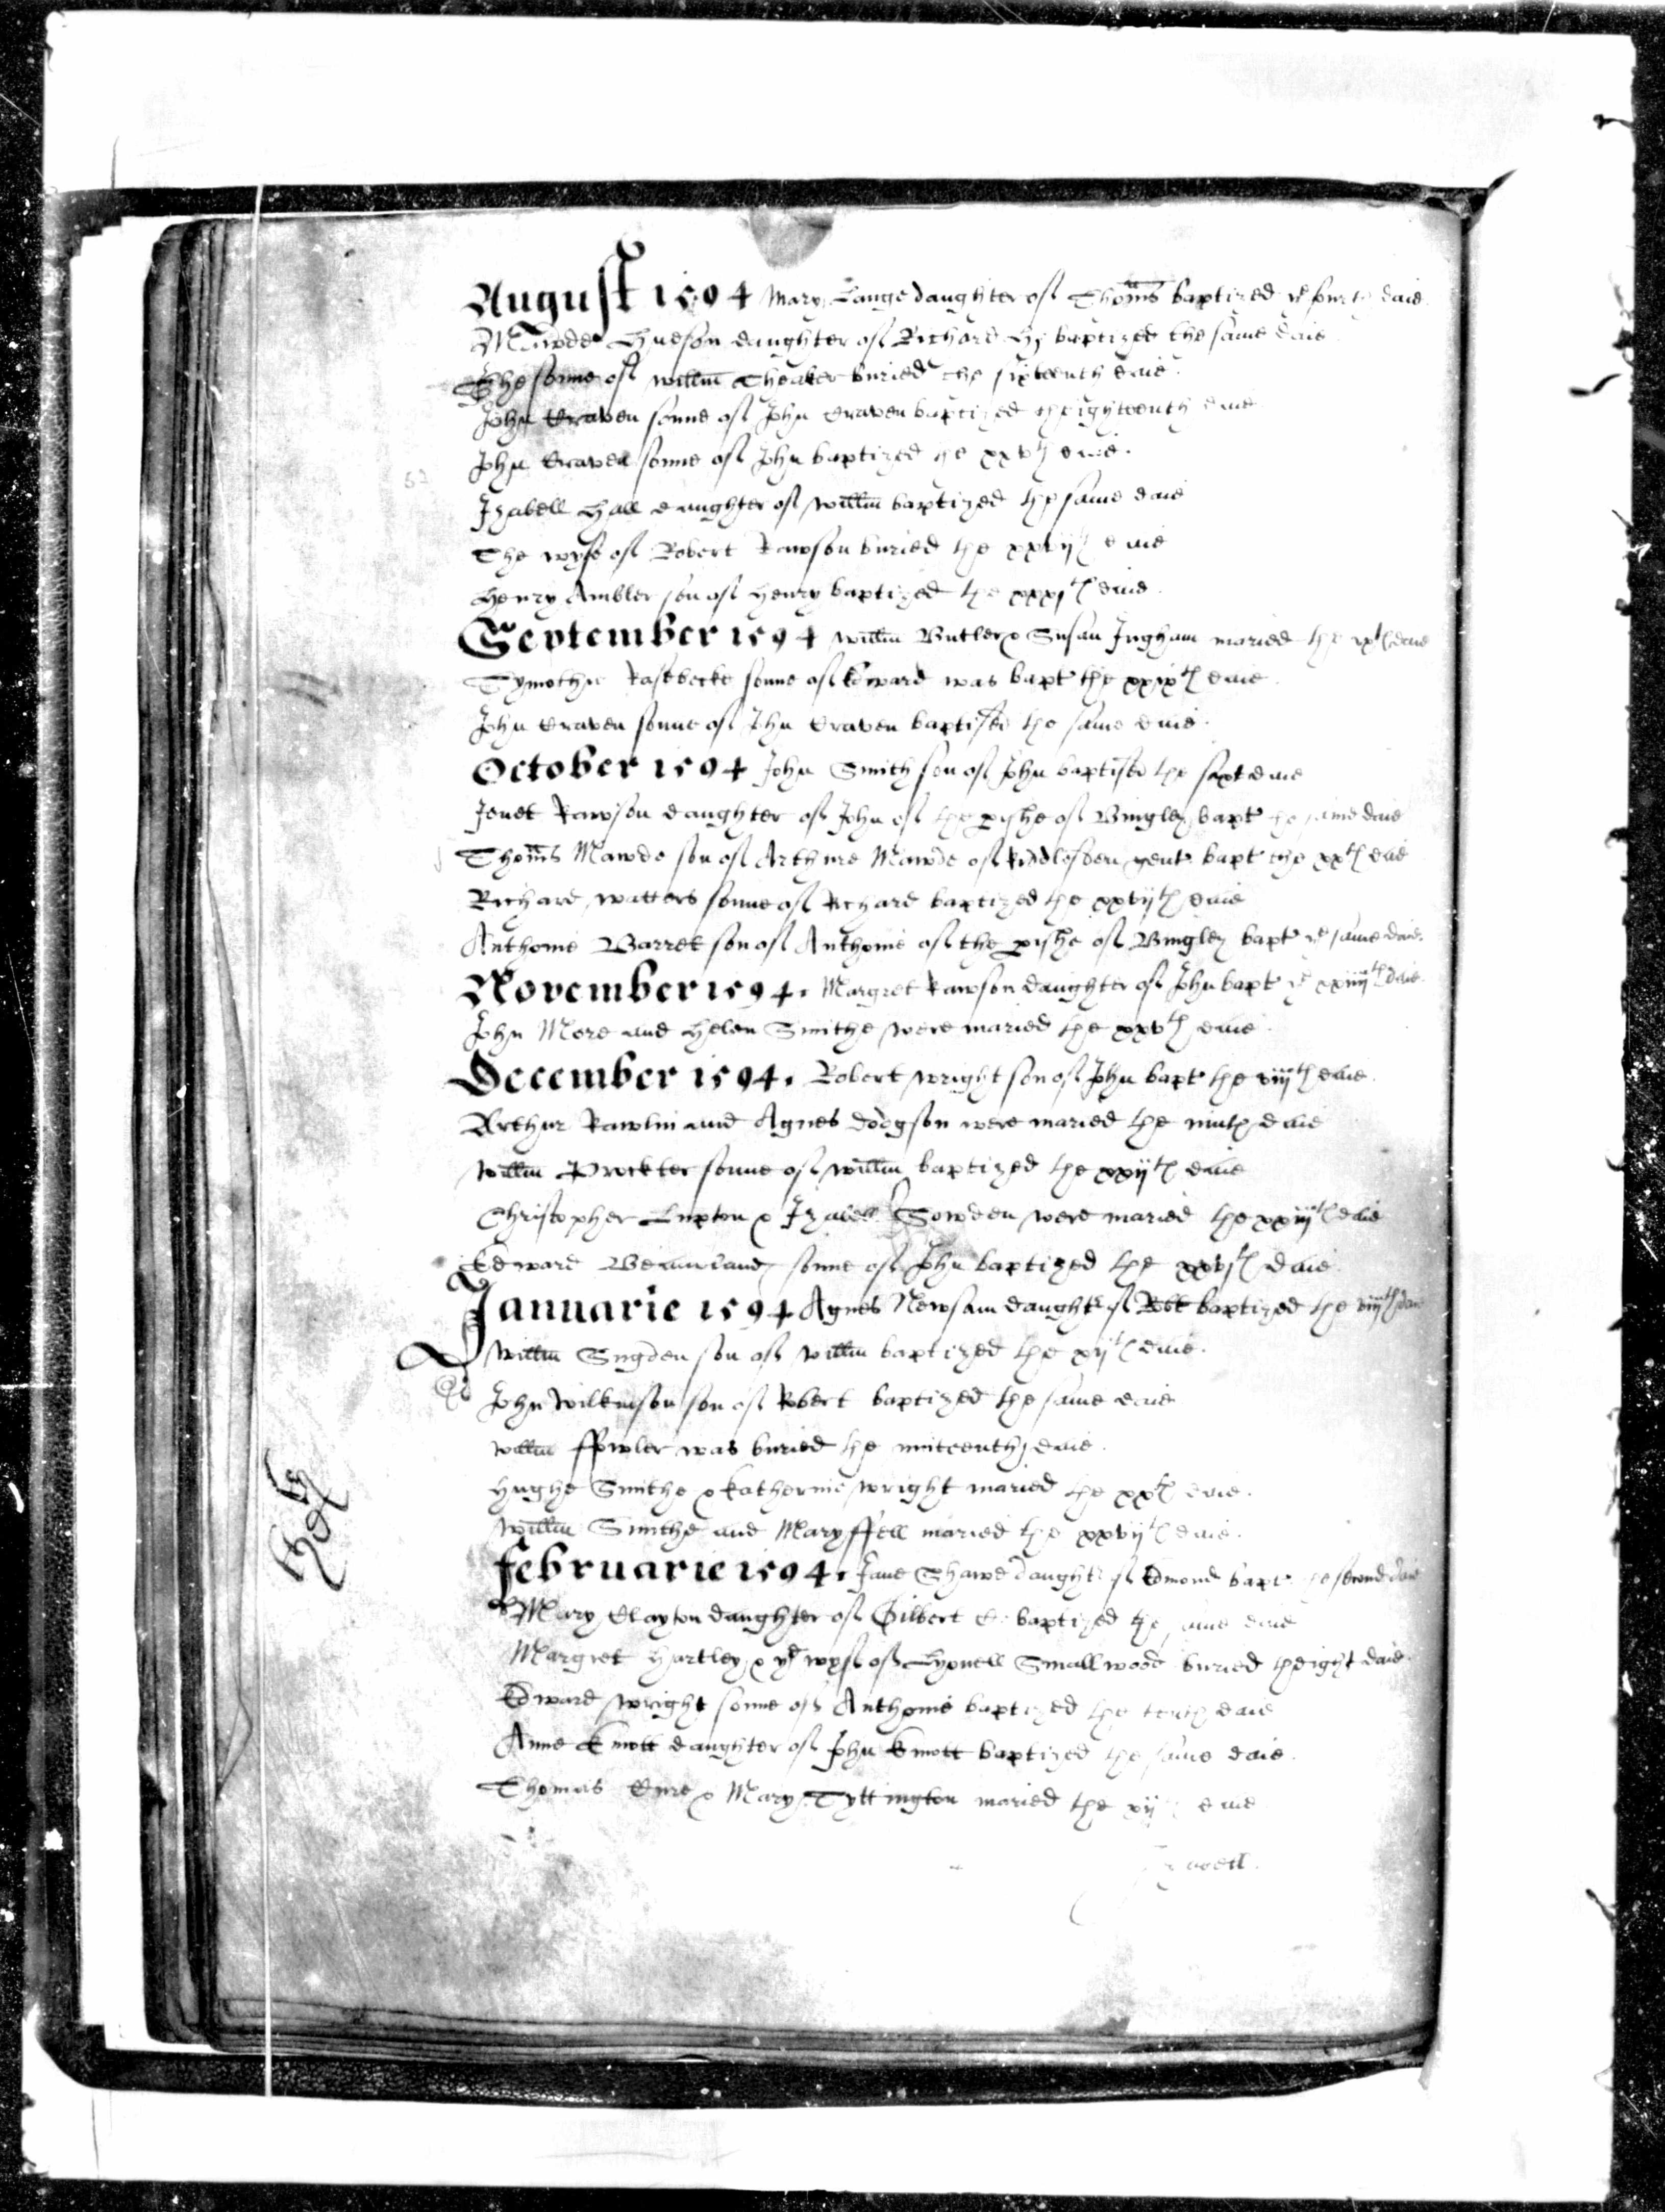 August 1594 Mary Lange daughter of Thoms baptized ye fourth daie
Mawde Hudson daughter of Richard H baptized the same daie
The sonne of Willm Theaker buried the sixteenth daie.
John Craven sonne of John Craven baptized the ightteenth daie
John Craven sonne of John baptized the xxvth daie.
Izabell Hall daughter of Willm baptized the same daie
The wyfe of Robert Rawson buried the daie
Henry Ambler son of Henry baptized the xxxjth daie.
September 1594 Willm Butler & Susan Ingham maried the daie
Tymothie sonne of Edward was bapt the xxixth daie.
John Craven sonne of John Craven baptised the same daie.
October 1594 John Smith son of John baptised the sixt daie
Jenet Rawson daughter of John of the pishe of Bingley bapt the same daie
Thoms Mawde son of Arthure Mawde of Riddlesden gent bapt the xxth daie
Richard Watters sonne of Richard baptized the xxvijth daie
Anthonie Barret son of Anthonie of the pishe of Bingley bapt ye same daie.
November 1594. Margret Rawson daughter of John bapt ye xxiiijth daie.
John More and Helen Smithe were maried the xxvth daie.
December 1594. Robert Wright son of John bapt the viijth daie.
Arthur Rawlin and Agnes Dodgson were maried the ninth daie
Willm Prockter sonne of Willm baptized the xxijth daie
Christopher Lupton & Izabell Sowden were maried the xxiijth daie
Edward sonne of John baptized the xxvjth daie.
Januarie 1594 Agnes Newsam daught of Robt baptized the viijth daie
Willm Sugden son of Willm baptized the xijth daie.
John Wilkinson son of Robert baptized the same daie
Willm ffowler was buried the ninteenth daie.
Hughe Smithe & Katherine Wright maried the xxth daie.
Willm Smithe and Mary ffell maried the xxvijth daie.
Februarie 1594. Jane Shawe daught of Edmond bapt the second daie
Mary Clayton daughter of Gilbert C. baptized the same daie
Margret Hartley & ye wyf of Lyonell Smallwood buried the ight daie.
Edward Wright sonne of Anthonie baptized the tenth daie
Anne Knott daughter of John Knott baptized the same daie.
Thomas & Mary Tyttington maried the xijth daie
Izabell.